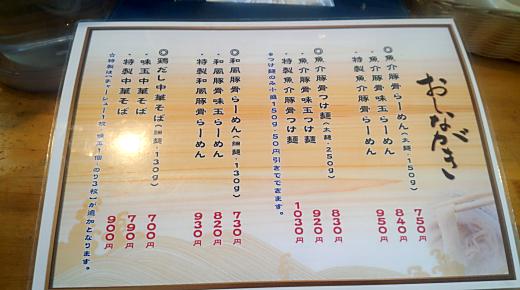 おしながき
◎魚介豚骨らーめん(太麺・150g) 750円
・魚介豚骨味玉らーめん 840円
・特製魚介豚骨らーめん 950円
◎魚介豚骨つけ麺(太麺・250g) 830円
・魚介豚骨味玉つけ麺 920円
・特製魚介豚骨つけ麺 1030円
※つけ麺のみ小盛150g・50円引きでできます。
◎和風豚骨らーめん(細麺・130g) 730円
・和風豚骨味玉らーめん 820円
・特製和風豚骨らーめん 930円
◎鶏だし中華そば(細麺・130g) 700円
・味玉中華そば 790円
・特製中華そば 900円
☆特製は【チャーシュー1枚・味玉1個・のり3枚】が追加となります。